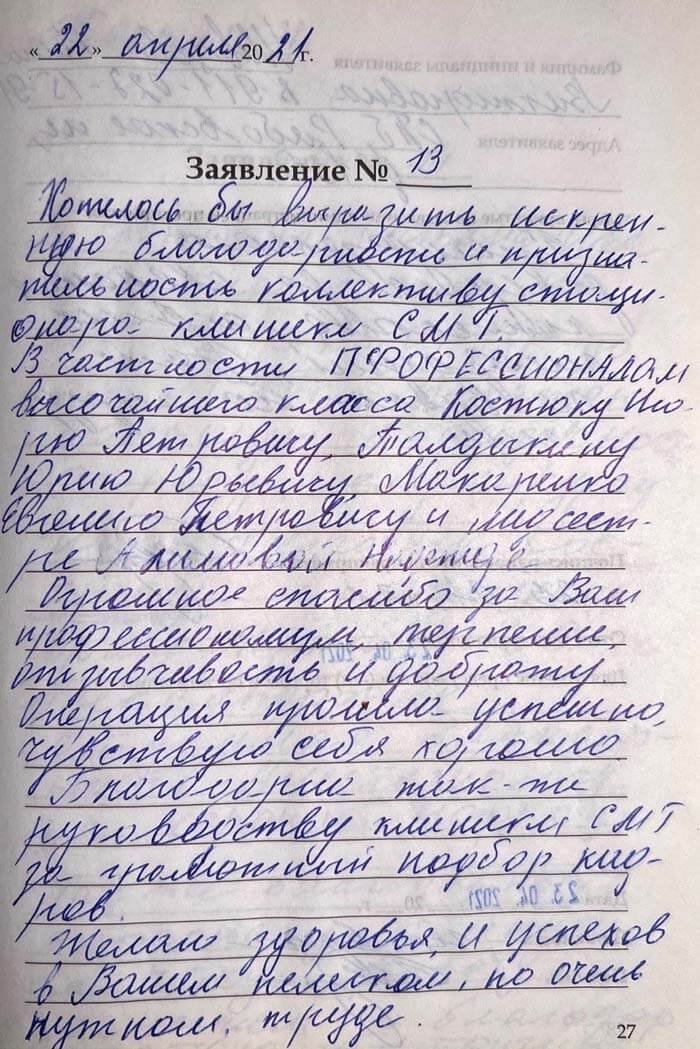 «22» апреля 2021 г.
Заявление № 13
Хотелось бы выразить искрен-
нюю благодарность и призна-
тельность коллективу стаци-
онара клиники СМТ.
В частности ПРОФЕССИОНАЛАМ
высочайшего класса Костюку Ию-
рю Петровичу, Талдыкину
Юрию Юрьевичу, Макаренко
Евгению Петровичу и медсест-
ре Акимовой Надежде
Огромное спасибо за Ваш
профессионализм, терпение,
отзывчивость и доброту.
Операция прошла успешно,
чувствую себя хорошо
Благодарна так-же
руководству клиники СМТ
за грамотный подбор кад-
ров.
23.04.2021
Желаю здоровья и успехов
в Вашем нелегком, но очень
нужном, труде.
27